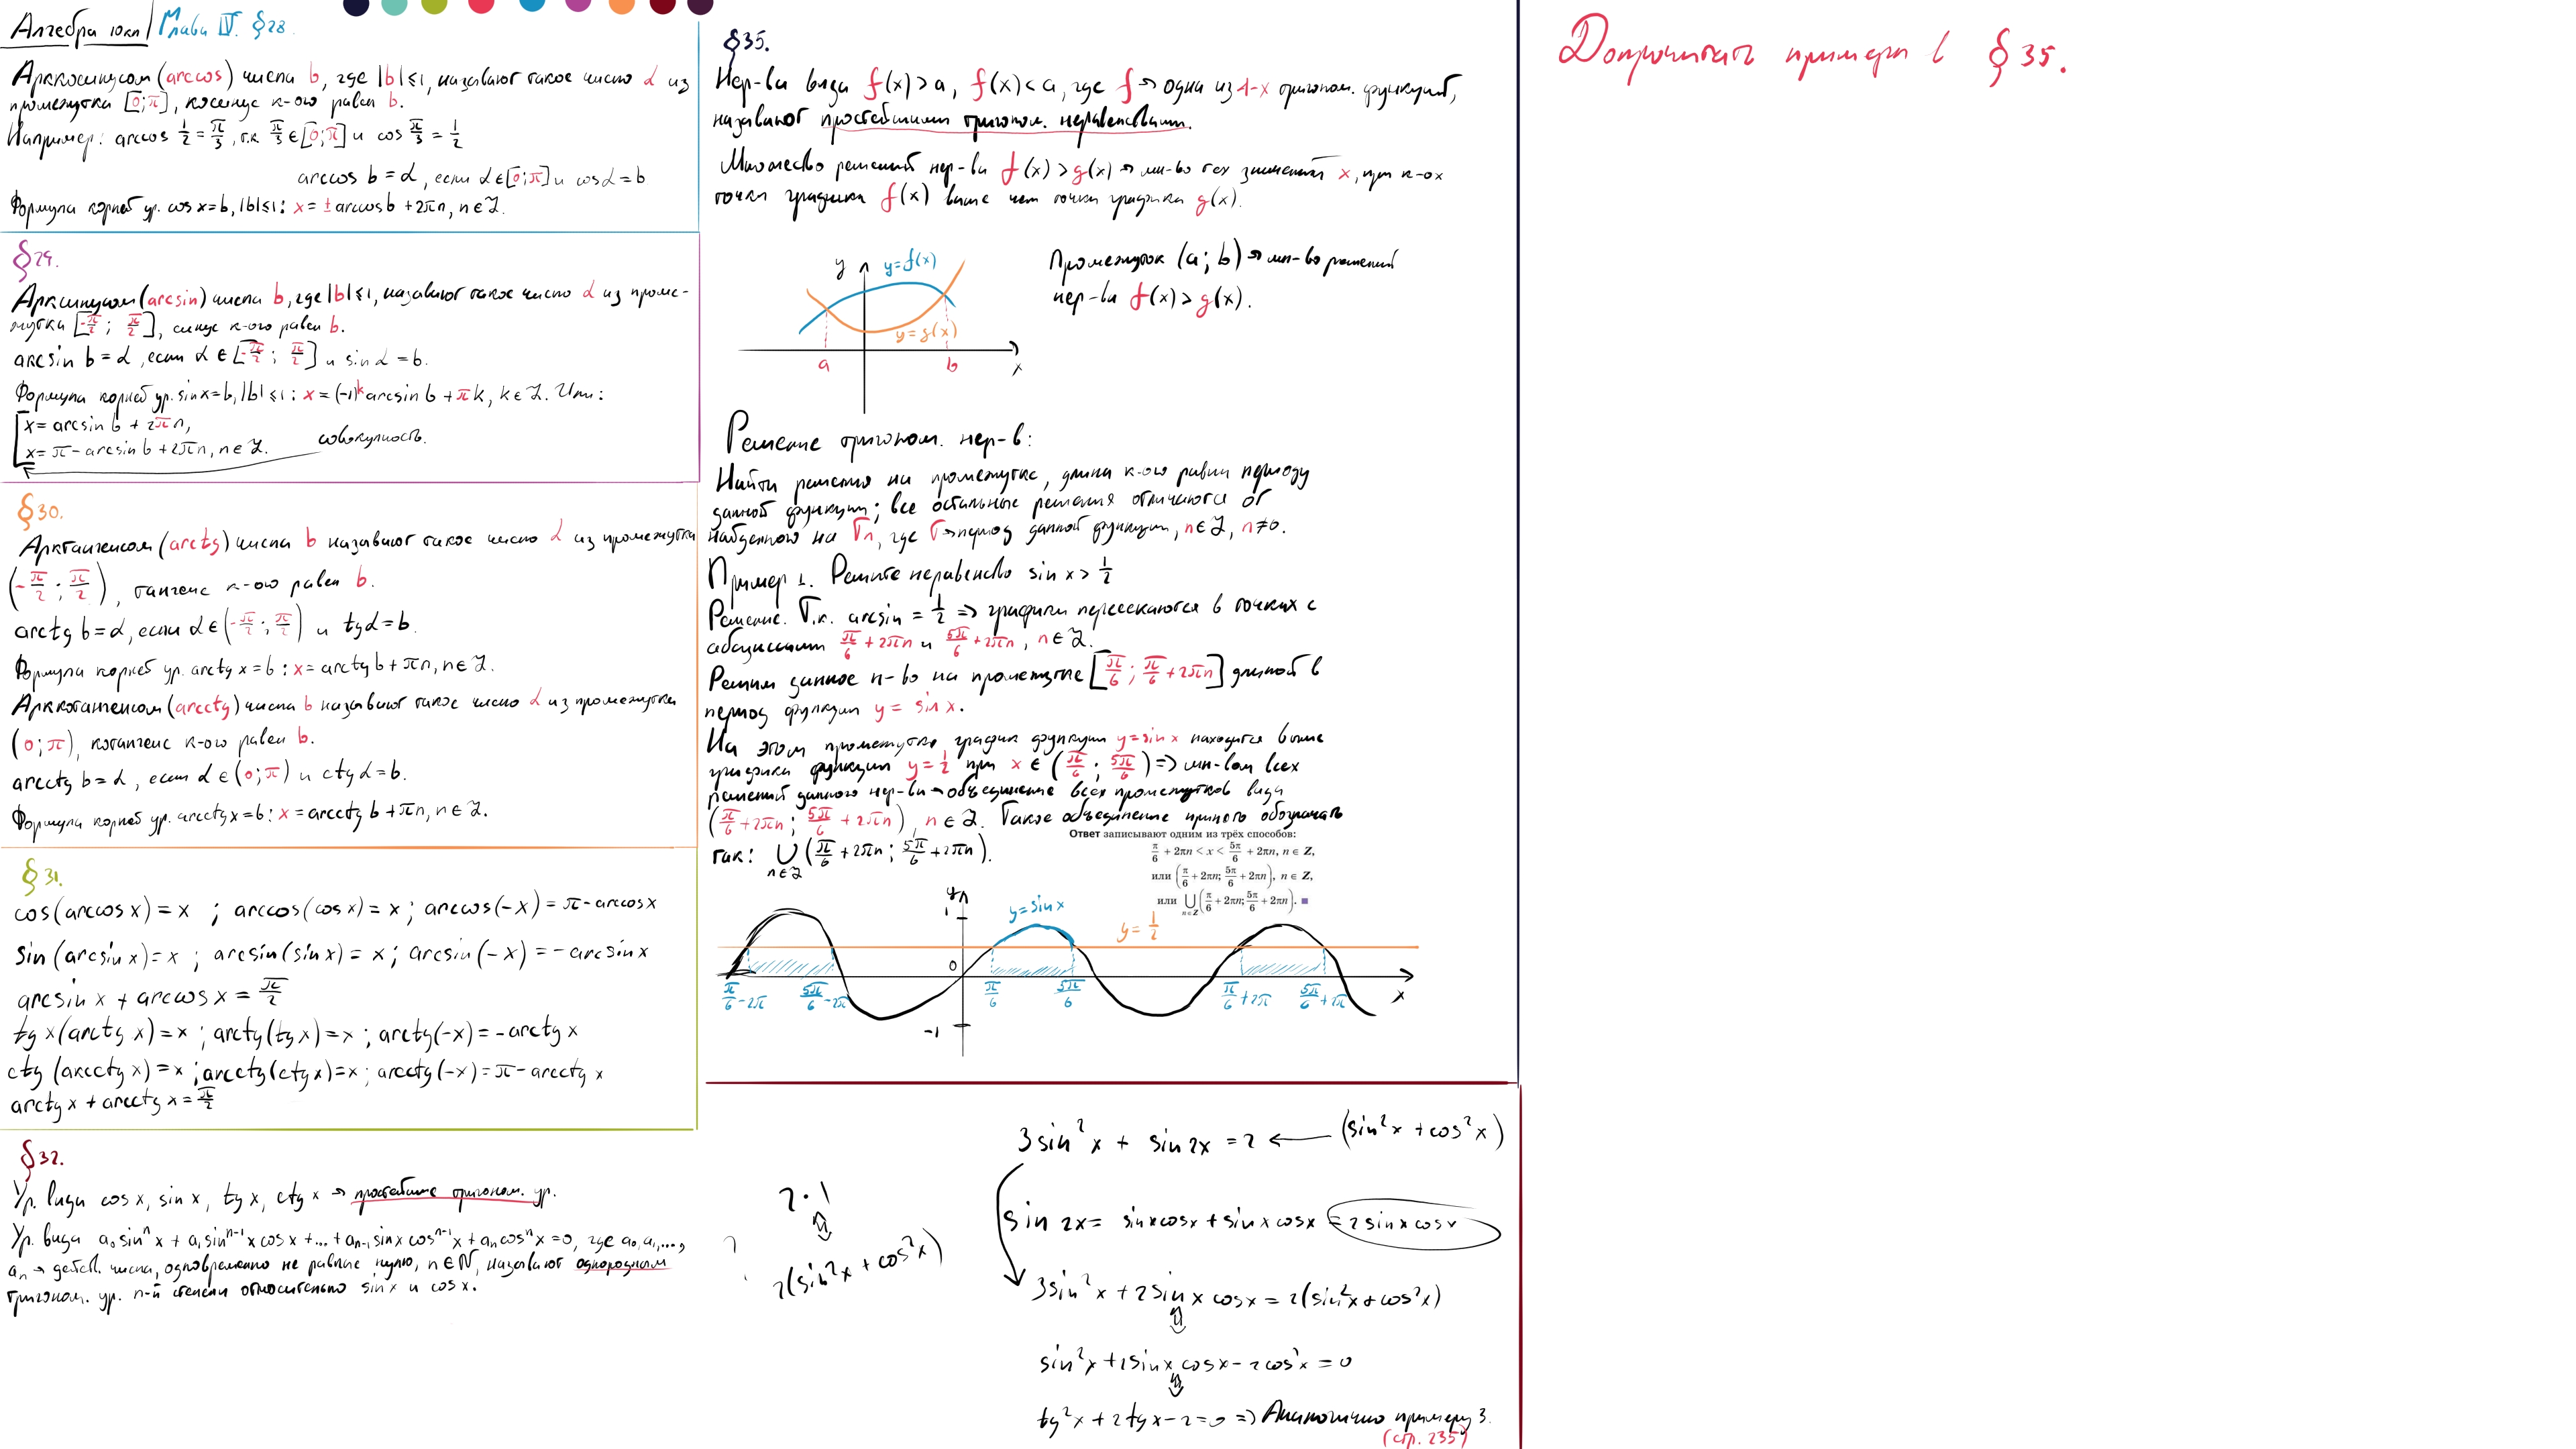 Алгебра 10кл / Глава IV. §28.
Арккосинусом (arccos) числа b, где |b|≤1, называют такое число α из
промежутка [0;π], косинус к-ого равен b.
Например: arccos 1/2 = π/3, т.к. π/3 ∈ [0;π] и cos π/3 = 1/2
arccos b = α, если α∈[0;π] и cosα = b
Формула корней ур. cos x = b, |b|≤1: x = ± arccos b + 2πn, n∈Z.
§29.
Арксинусом (arcsin) числа b, где |b|≤1, называют такое число α из проме-
жутка [-π/2; π/2], синус к-ого равен b.
arcsin b = α, если α ∈ [-π/2; π/2] и sin α = b.
Формула корней ур. sin x = b, |b|≤1: x = (-1)^k arcsin b + πk, k∈Z. Или:
x = arcsin b + 2πn,
x = π - arcsin b + 2πn, n∈Z.
совокупность.
§30.
Арктангенсом (arctg) числа b называют такое число α из промежутка
(-π/2; π/2), тангенс к-ого равен b.
arctg b = α, если α∈(-π/2; π/2) и tgα = b.
Формула корней ур. arctg x = b: x = arctg b + πn, n∈Z.
Арккотангенсом (arcctg) числа b называют такое число α из промежутка
(0;π), котангенс к-ого равен b.
arcctg b = α, если α∈(0;π) и ctgα = b.
Формула корней ур. arcctg x = b: x = arcctg b + πn, n∈Z.
§31.
cos(arccos x) = x ; arccos(cos x) = x ; arccos(-x) = π - arccos x
sin(arcsin x) = x ; arcsin(sin x) = x ; arcsin(-x) = -arcsin x
arcsin x + arccos x = π/2
tg x(arctg x) = x ; arctg(tg x) = x ; arctg(-x) = -arctg x
ctg (arcctg x) = x ; arcctg(ctg x) = x ; arcctg(-x) = π - arcctg x
arctg x + arcctg x = π/2
§32.
Ур. вида cos x, sin x, tg x, ctg x → простейшие тригоном. ур.
Ур. вида a₀ sinⁿ x + a₁ sinⁿ⁻¹ x cos x + ... + aₙ₋₁ sin x cosⁿ⁻¹ x + aₙ cosⁿ x = 0, где a₀, a₁, ...,
aₙ → действ. числа, одновременно не равные нулю, n∈N, называют однородным
тригоном. ур. n-й степени относительно sin x и cos x.
§35.
Нер-ва вида f(x) > a, f(x) < a, где f → одна из 4-х тригоном. функций,
называют простейшими тригоном. неравенствами.
Множество решений нер-ва f(x) > g(x) → мн-во тех значений x, при к-ох
точки графика f(x) выше чем точки графика g(x).
y
y=f(x)
y=g(x)
a
b
x
Промежуток (a; b) → мн-во решений
нер-ва f(x) > g(x).
Решение тригоном. нер-в:
Найти решения на промежутке, длина к-ого равна периоду
данной функции; все остальные решения отличаются от
найденного на Tn, где T → период данной функции, n∈Z, n≠0.
Пример 1. Решите неравенство sin x > 1/2
Решение. Т.к. arcsin = 1/2 => графики пересекаются в точках с
абсциссами π/6 + 2πn и 5π/6 + 2πn, n∈Z.
Решим данное н-во на промежутке [π/6; π/6 + 2πn] длиной в
период функции y = sin x.
На этом промежутке график функции y = sin x находится выше
графика функции y = 1/2 при x ∈ (π/6; 5π/6) => мн-вом всех
решений данного нер-ва → объединение всех промежутков вида
(π/6 + 2πn; 5π/6 + 2πn), n∈Z. Такое объединение принято обозначать
так: ∪ n∈Z (π/6 + 2πn; 5π/6 + 2πn).
Ответ записывают одним из трёх способов:
π/6 + 2πn < x < 5π/6 + 2πn, n ∈ Z,
или (π/6 + 2πn; 5π/6 + 2πn), n ∈ Z,
или ∪ n∈Z (π/6 + 2πn; 5π/6 + 2πn). ■
y
1
y=sin x
y = 1/2
0
π/6 - 2π
5π/6 - 2π
π/6
5π/6
π/6 + 2π
5π/6 + 2π
x
-1
3sin²x + sin 2x = 2 ← (sin²x + cos²x)
2·1
2(sin²x + cos²x)
sin 2x = sinxcosx + sinxcosx = 2sinxcosx
3sin²x + 2sin x cosx = 2(sin²x + cos²x)
sin²x + 2sinx cosx - 2cos²x = 0
tg²x + 2tgx - 2 = 0 => Аналогично примеру 3.
(стр. 235)
Допрочитать примеры в §35.